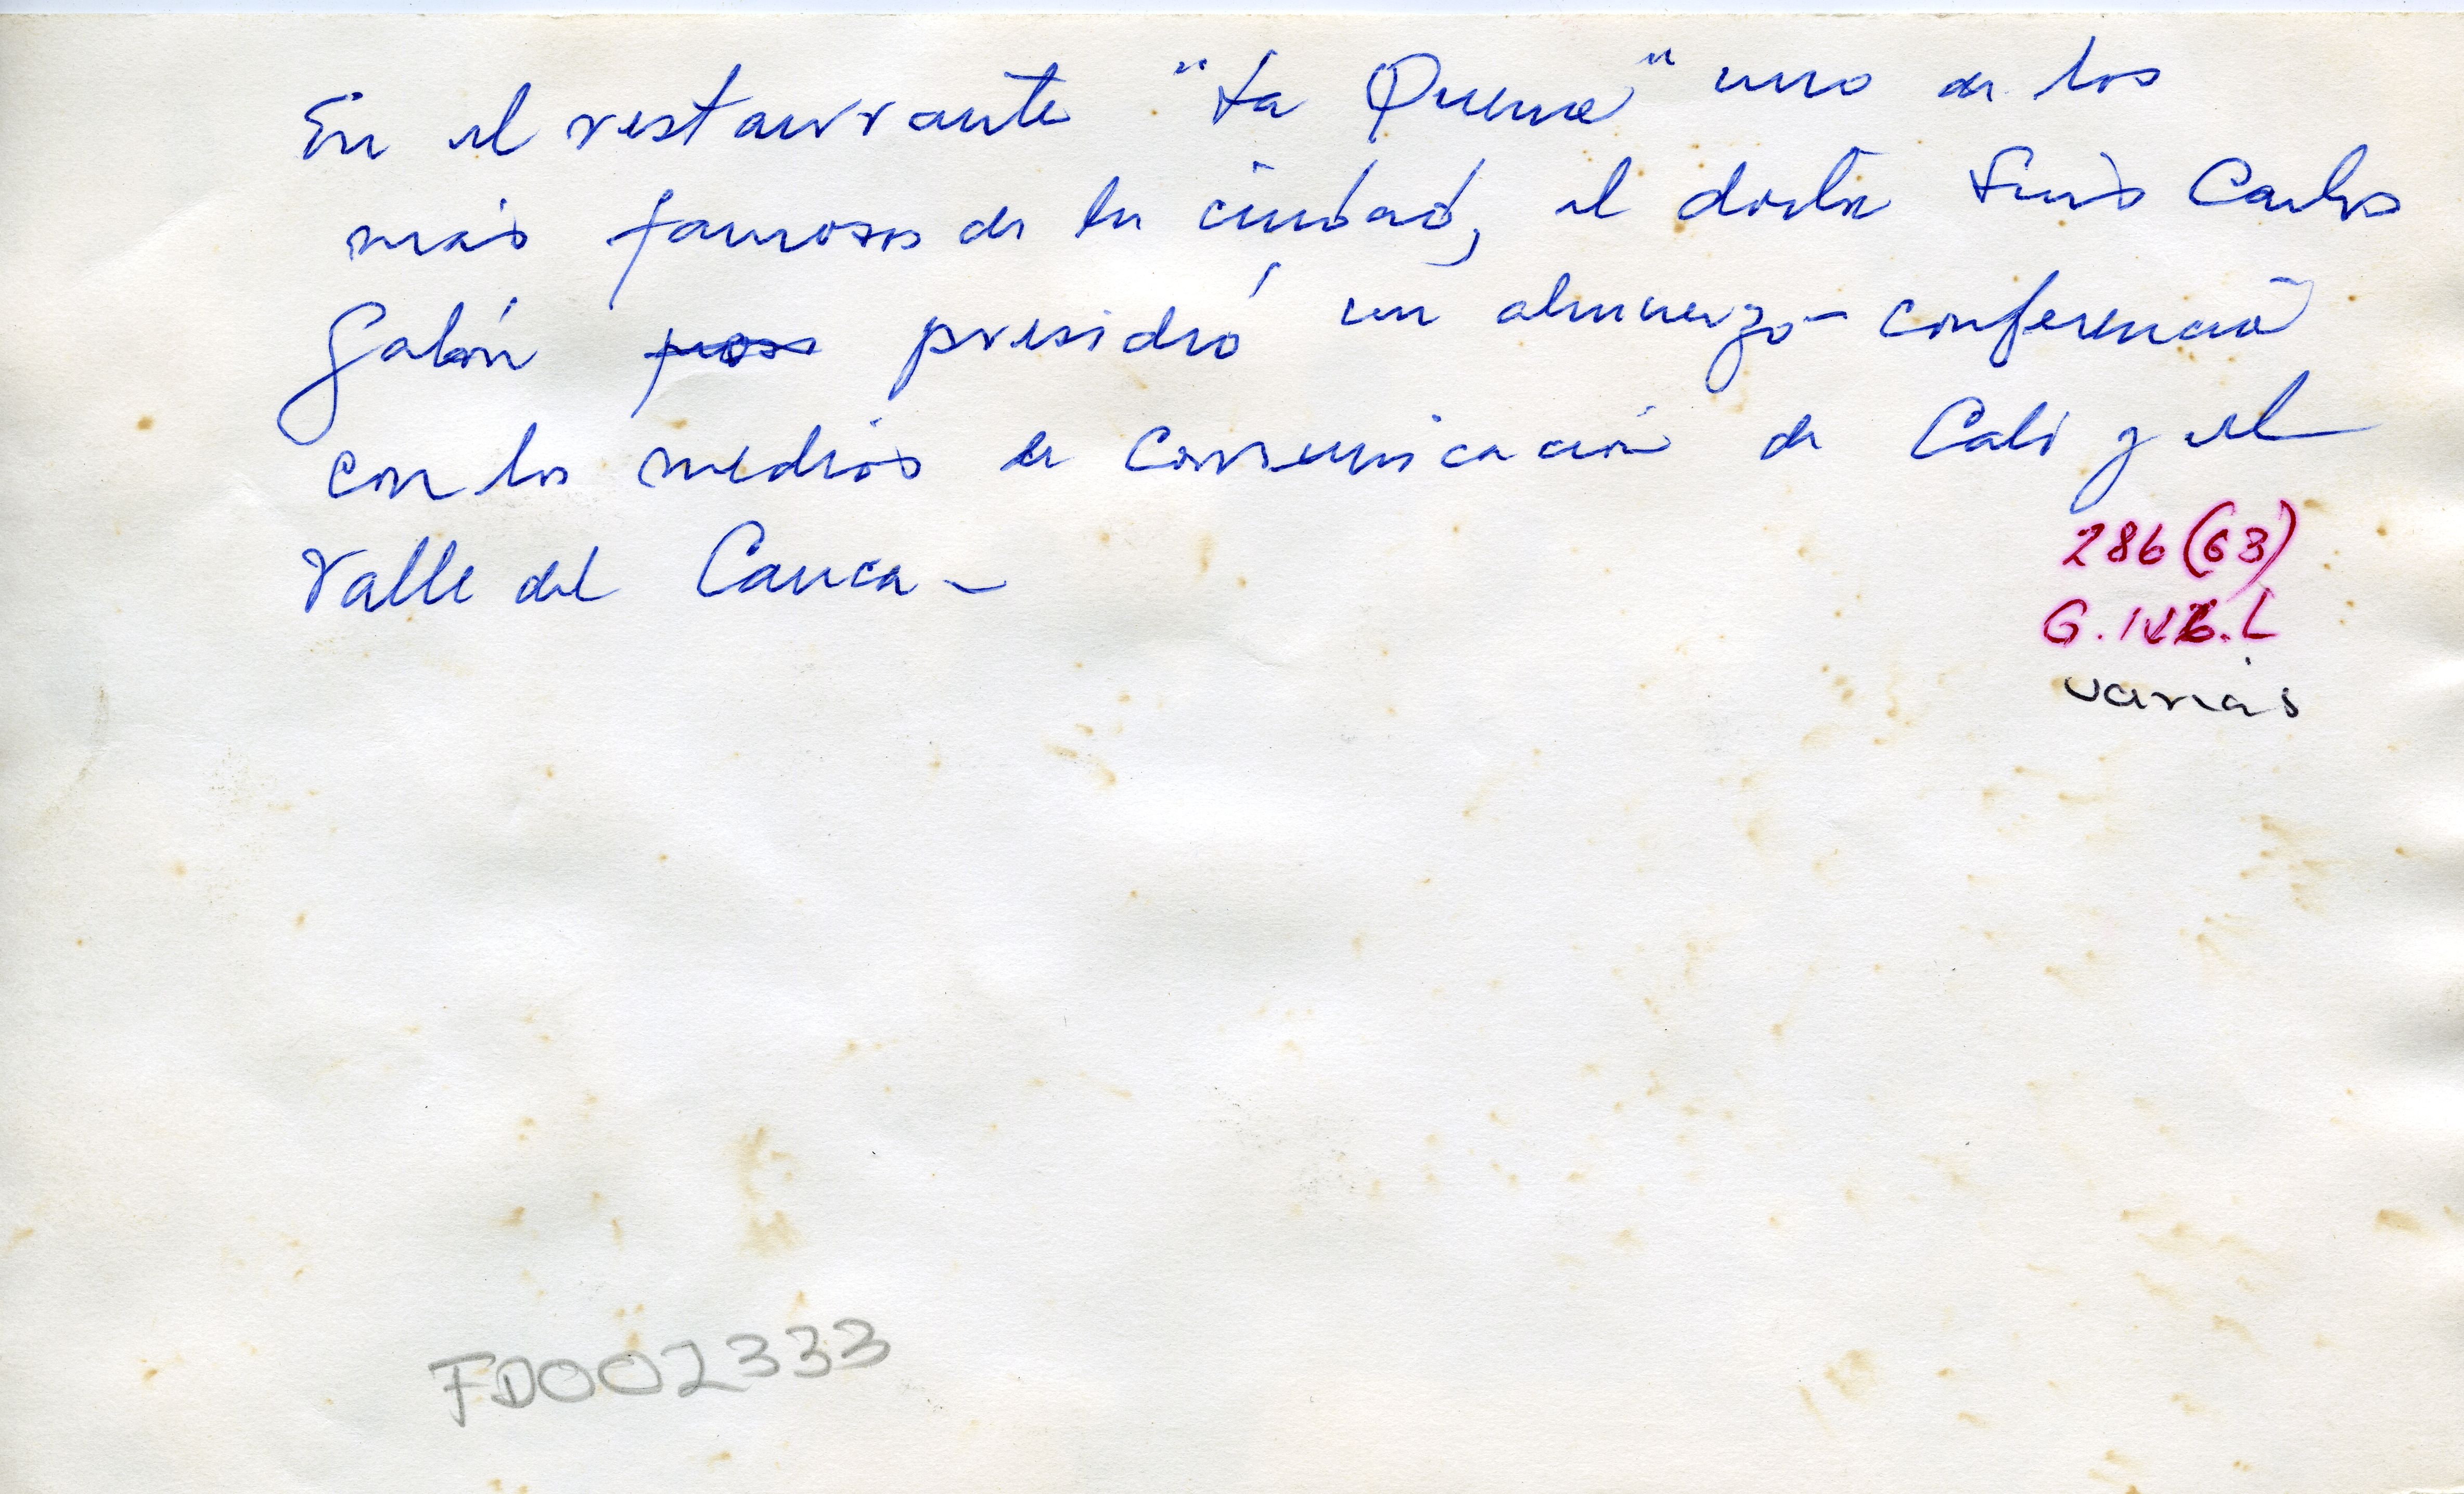 En el restaurrante "La Quena" uno de los
más famosos de la ciudad, el doctor Luis Carlos
Galán presidió un almuerzo-conferencia
con los medios de comunicación de Cali y el
Valle del Cauca -
286 (63)
varias
FD002333